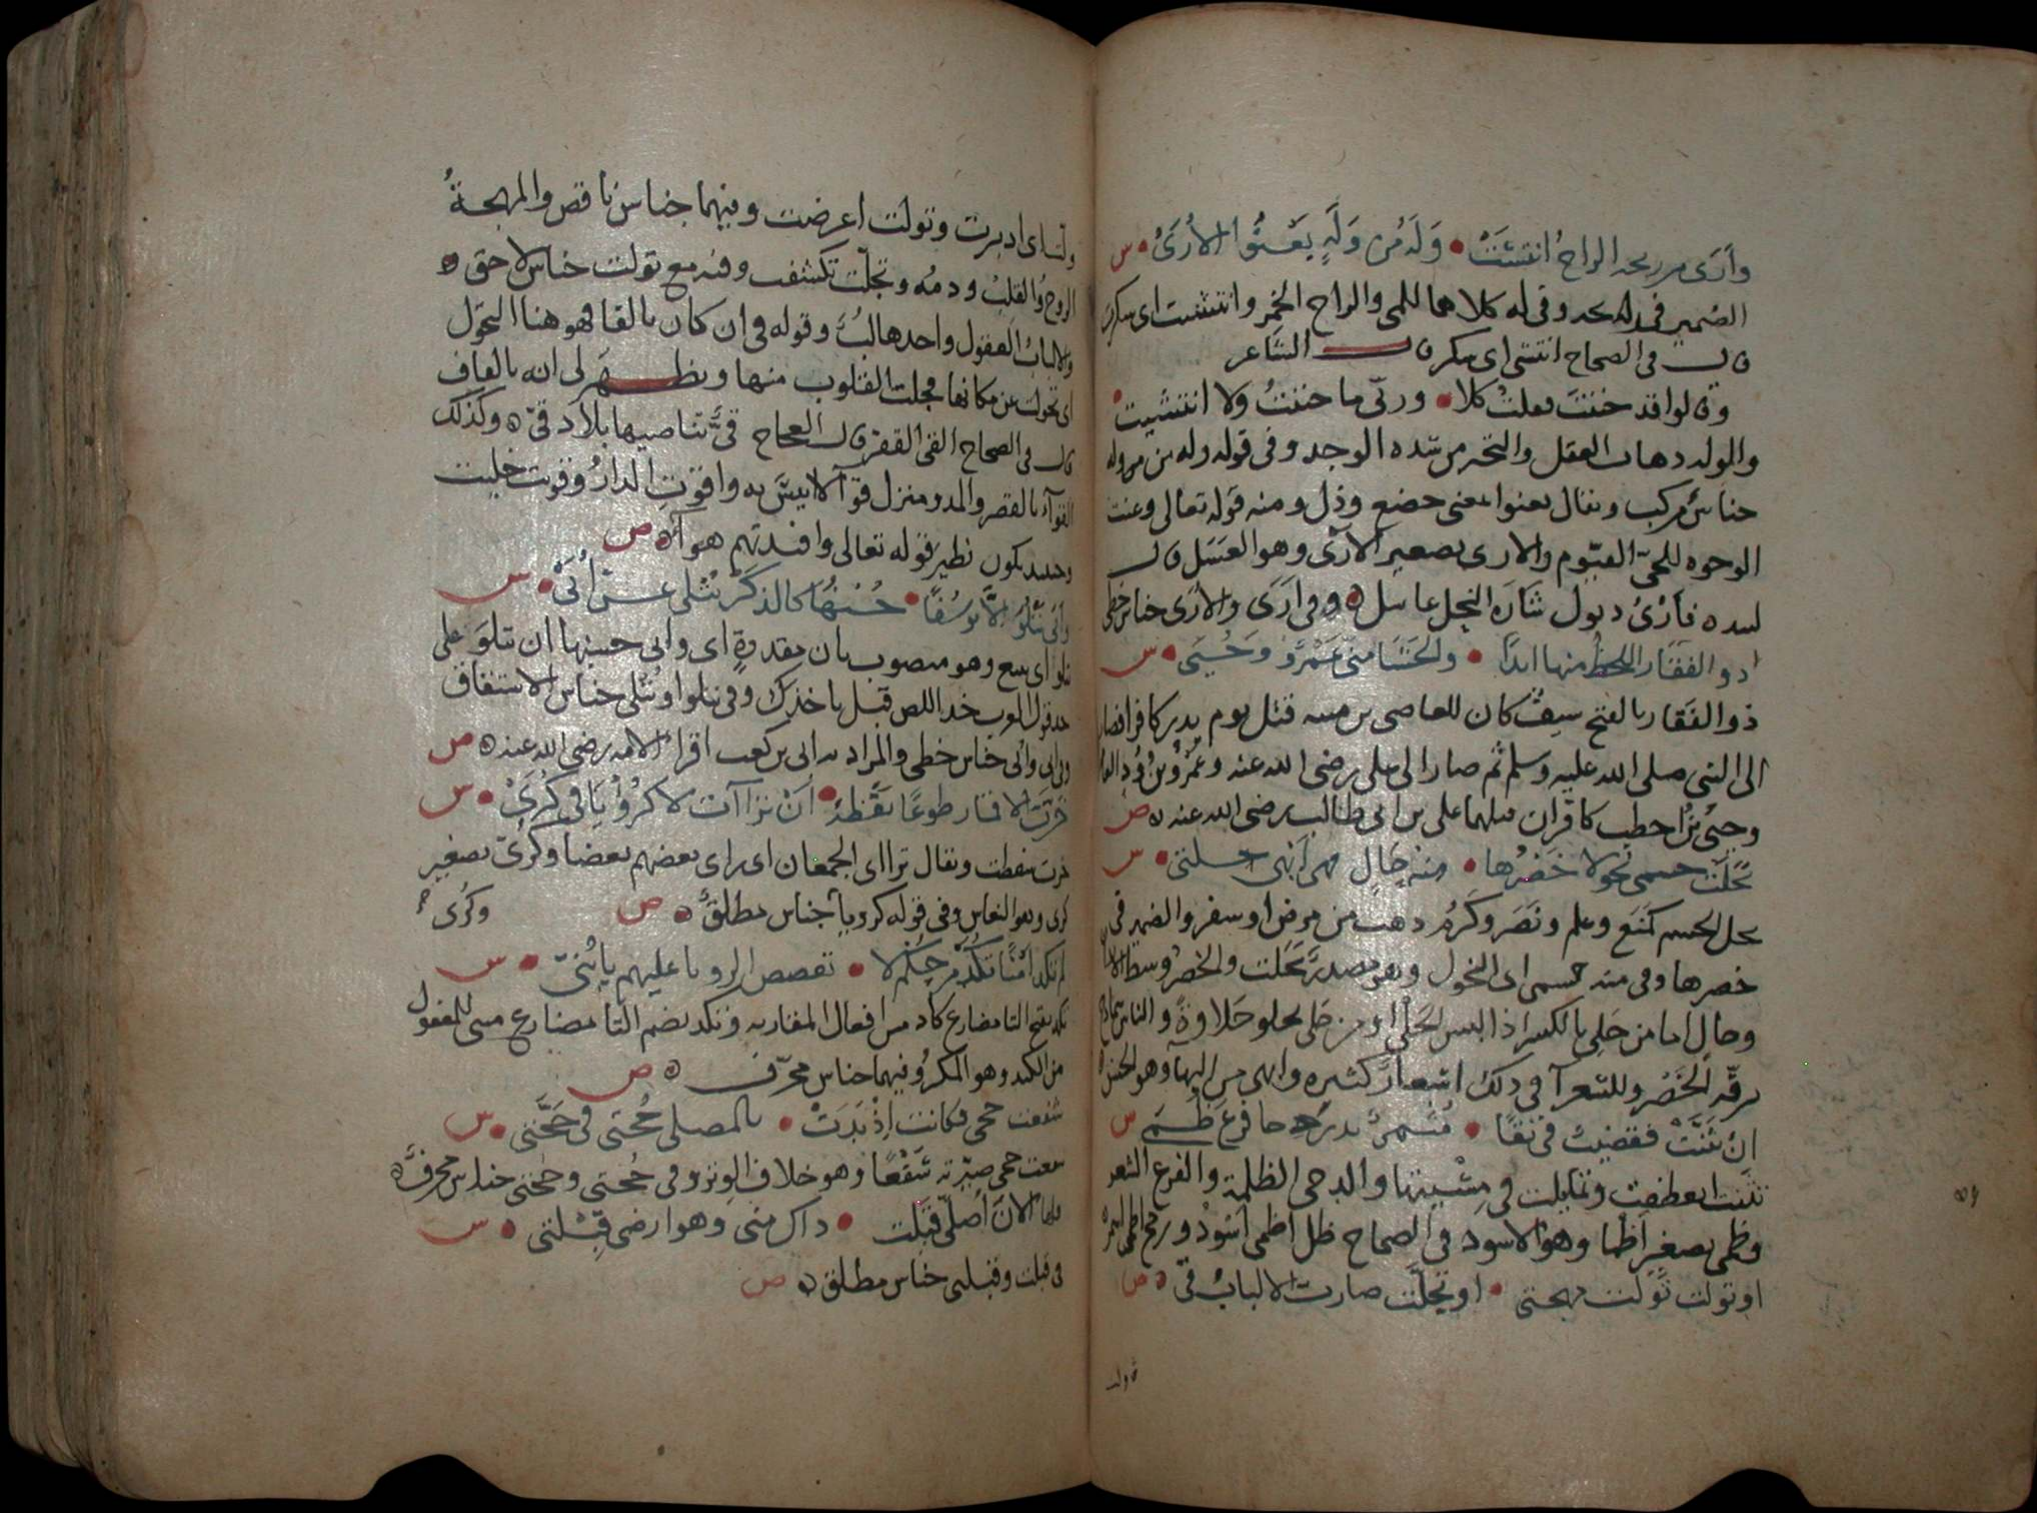 وأرى من ريحه الراح انتشت • وَلَهُ مِن وَلَهٍ يَعْنُوا الأُرَىْ • س
الضمير في ريحه وفي له كلاهما للمى والراح الخمر وانتشت اى سكرت
قال في الصحاح انتشى اى سكر قال الشاعر
وقالوا قد جننت فقلت كلا • وربّى ما جننتُ ولا انتشيت •
والوله ذهاب العقل والتحير من شدة الوجد وفي قوله وله من وله
جناس مركب ويقال يعنوا بمعنى خضع وذل ومنه قوله تعالى وعنت
الوجوه للحيّ القيّوم والارى تصغير الأرى وهو العسل قال
لبيد فأرْىُ دبول شارَه النحل عاسل ه وفي أرى والأرى جناس خطى
ذو الفقار اللحظ منها ابدًا • والحَشَا منى عَمْرٌو وَحُيَىْ • س
ذو الفَقار بالفتح سيف كان للعاصى بن منبه قتل يوم بدر كافرا فصار
الى النبي صلى الله عليه وسلم ثم صار الى على رضى الله عنه وعمرو بن ود
وحيى بن اخطب كافران قتلهما على بن ابي طالب رضى الله عنه ه ص
نحلت جسمى نحولا خصرُها • منه حَالٍ فهى أبهى حلتى • س
نحل الجسم كمَنَع وعلم ونَصَر وكَرُم ذهب من مرض او سفر والضمير في
خصرها وفي منه لجسمى اى النحول وهو مصدر نَحَلت والخصر وسط الانسان
وحال اما من حَلِي بالكسر اذا لبس الحَلْى او من حَلى يحلو حَلاوة والناس تمدح
برقّة الخَصْر وللشعرآ في ذلك اشعار كثيره وابهى من البهآ وهو الحسن ه
ان تَثَنَّتْ فقضيبٌ فى نقًا • مُثمرٌ بدرَ دجا فرعَ ظُمَىْ س
تثنت انعطفت وتمايلت في مِشْيتها والدجى الظلمة والفرع الشعر
وظُمى تصغير أظما وهو الاسود في الصحاح ظل اظمى أسود ورمح اظمى اسمر ه
او تولت تولت مهجتى • او تجلّت صارت الالباب فى ه ص
تولت
ولت اى ادبرت وتولت اعرضت وفيهما جناس ناقص والمهجةُ
الروحُ والقلبُ ودمه وتجلّت تكشفت وفيه مع تولت جناس لاحق ه
والالباب العقول واحدها لبّ وقوله في ان كان بالفا فهو هنا التحول
اى تحولت عن مكانها فجلت القلوب منها ويظهر لى انه بالقاف
قال في الصحاح القى القفر قال العجاج قىٌّ تناصيها بلاد قىّ ه وكذلك
القوآء بالقصر والمد ومنزل قوآ لا انيسَ به واقوَتِ الدارُ وقوِيَت خليت
وحينئذ يكون نظير قوله تعالى وافئدتهم هوآء ه ص
وأبَى يَتْلُوَ الاّ يوسُفًا • حُسنُها كالذكر يُتْلى عن أُبَىْ • س
يتلو اى يتبع وهو منصوب بان مقدرة اى وابى حسنها ان يتلوَ على
حد قول العرب خذ اللص قبل ياخذك وفي يتلوا ويُتْلى جناس الاشتقاق
وفي ابى وأبى جناس خطى والمراد به ابى بن كعب اقرا الامه رضى الله عنه ه ص
خرّت الاقمار طوعًا يقظةً • اَنْ تراآت لا كرؤيا فى كُرَىْ • س
خرت سقطت ويقال تراآى الجمعان اى راى بعضهم بعضا وكُرىّ تصغير
كرى وهو النعاس وفي قوله كرؤيا جناس مطلق ه ص وكُرى
لم تَكَدْ أَمْنًا تُكَدْ من حُكم لا • تقصص الرويا عليهم يا بُنَىّ • س
تكد بفتح التا مضارع كاد من افعال المقاربه وتُكد بضم التا مضارع مبنى للمفعول
من الكيد وهو المكر وفيهما جناس محرّف ه ص
شفعت حجى فكانت إذْ بَدَتْ • بالمصلى حُجّتى فى حَجّتى • س
شفعت حجى صيرته شَفْعًا وهو خلاف الوتر وفى حُجتى وحَجتى جناس محرف ه
فلها الآن أُصلّى قَبِلَت • ذاك منى وهو ارضى قِبْلتى • س
فى قبلت وقبلتى جناس مطلق ه ص